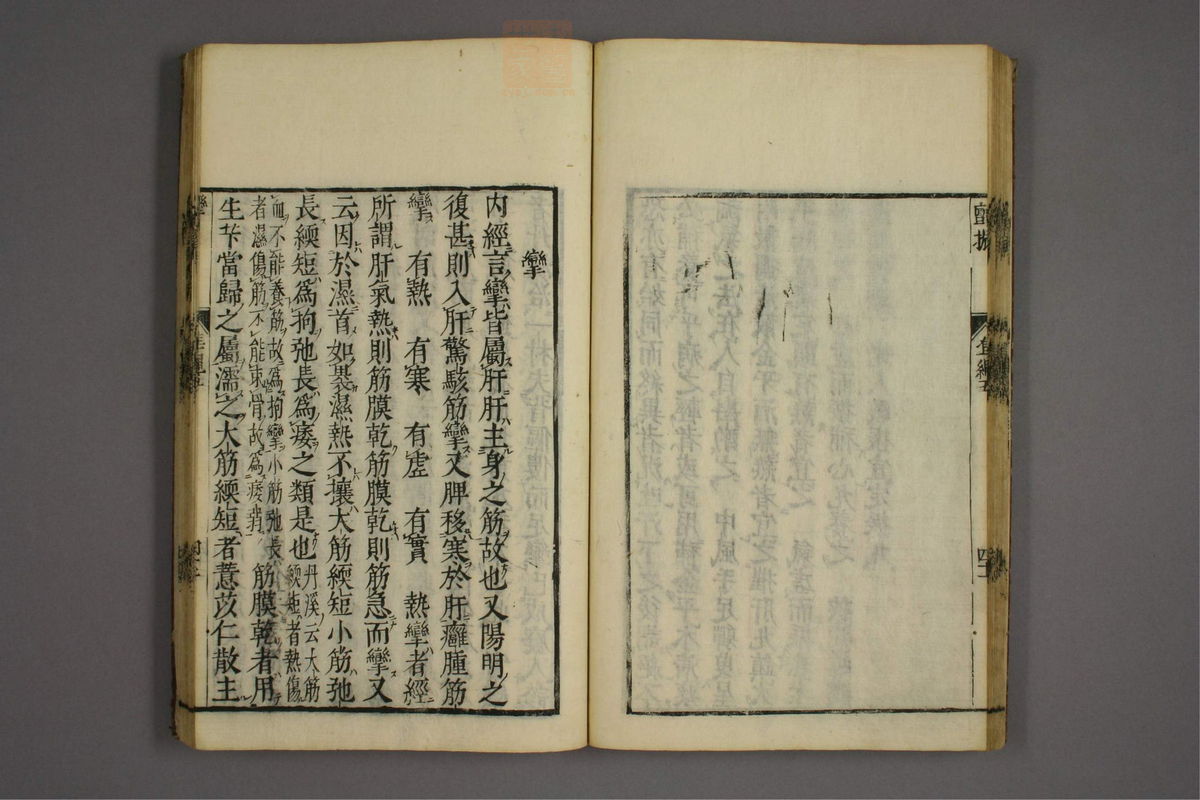 攣
内經言攣皆屬肝肝主身之筋故也又陽明之
復甚則入肝驚駭筋攣又脾移寒於肝癰腫筋
攣 有熱 有寒 有虚 有實 熱攣者經
所謂肝氣熱則筋膜乾筋膜乾則筋急而攣又
云因於濕首如裹濕熱不攘大筋緛短小筋弛
長緛短爲拘弛長爲痿之類是也丹溪云大筋緛短者熱傷
血不能養筋故爲拘攣小筋弛長
者濕傷筋不能束骨故爲痿弱筋膜乾者用
生芐當歸之屬濡之大筋緛短者薏苡仁散主